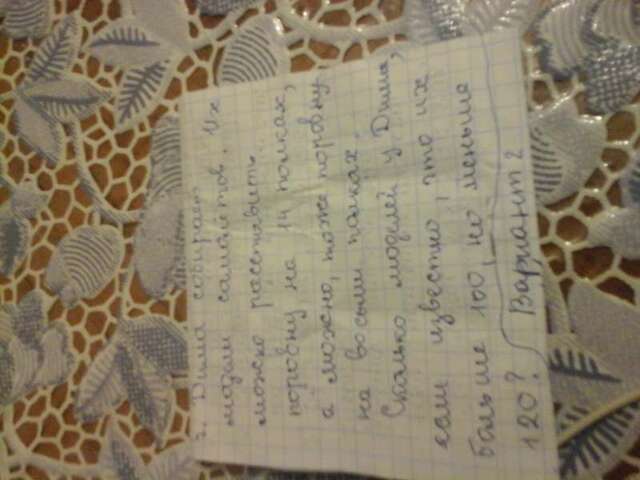 7. Дима собирает
модели самолётов. Их
можно расставить
поровну на 14 полках,
а можно, тоже поровну,
на восьми полках.
Сколько моделей у Димы,
если известно, что их
больше 100, но меньше
120? Вариант 2